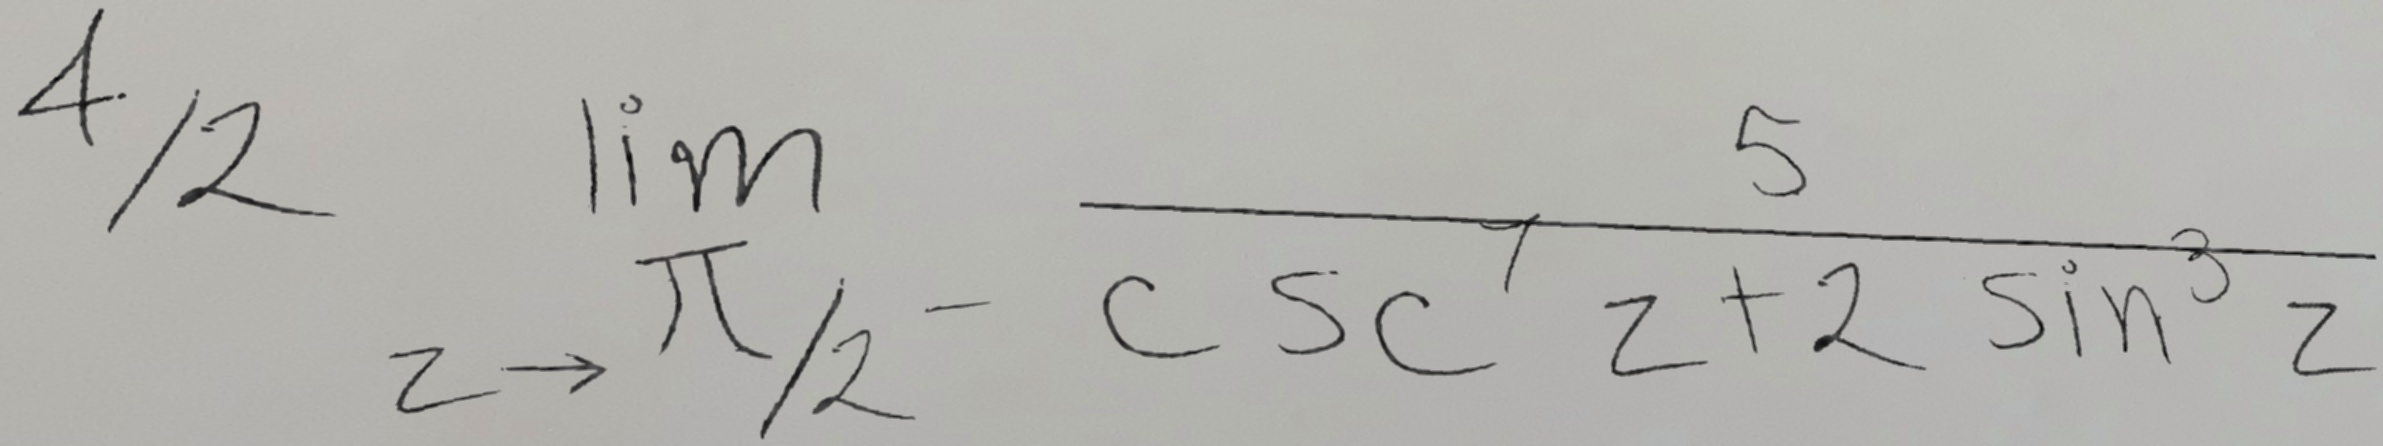 4/2 lim z→π/2⁻ 5/(csc¹ z+2 sin³ z)